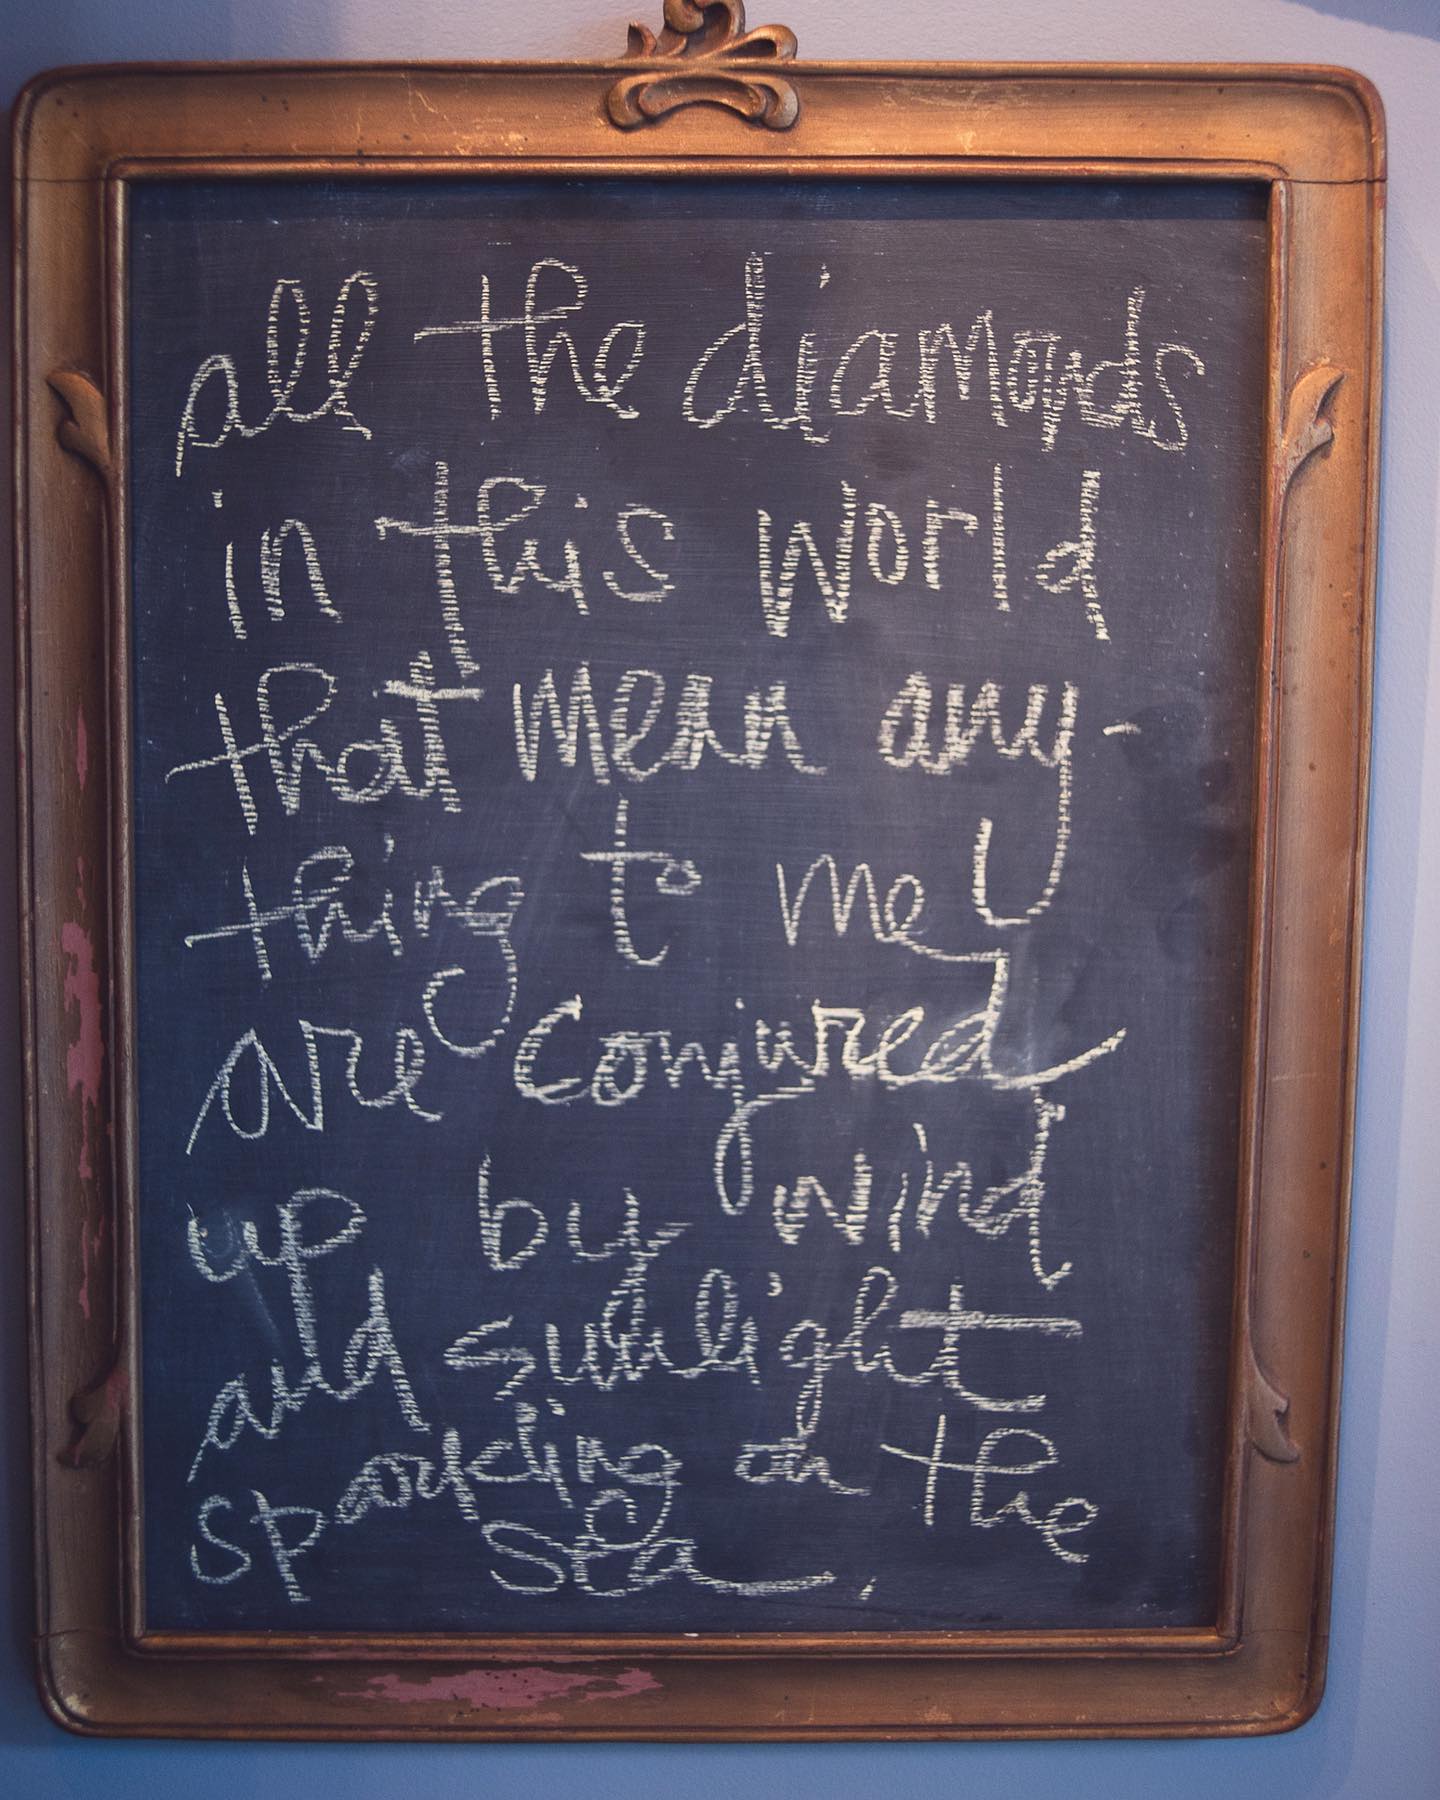 all the diamonds
in this world
that mean any-
thing to me
are conjured
up by wind
and sunlight
sparkling on the
sea,